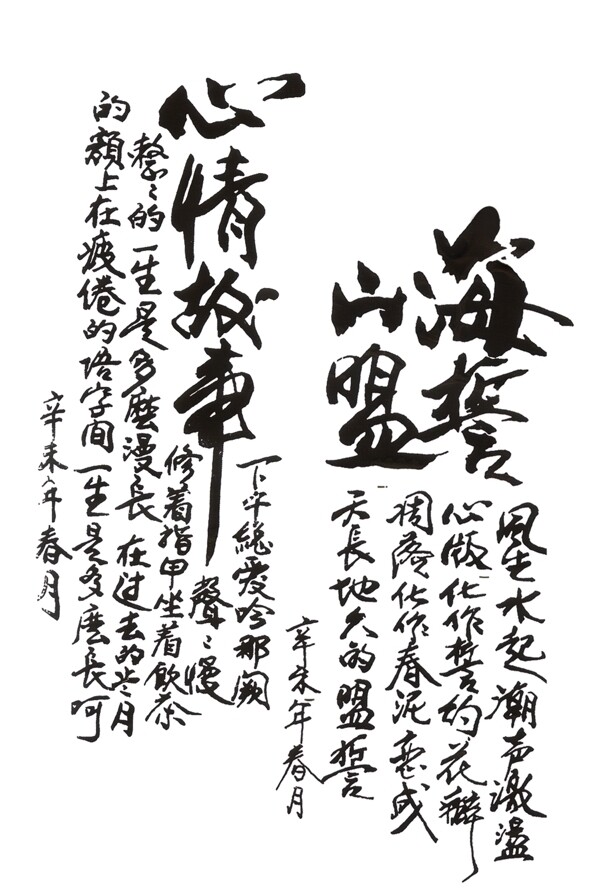 海誓
山盟
風生水起潮声激盪
心版化作誓約花瓣
凋落化作春泥变成
天長地久的盟誓
辛未年春月
心情故事
下午總愛吟那闕
聲〻慢
修着指甲坐着飲茶
整〻的一生是多麼漫長在过去的岁月
的額上在疲倦的语字间一生是多麽長呵
辛未年春月